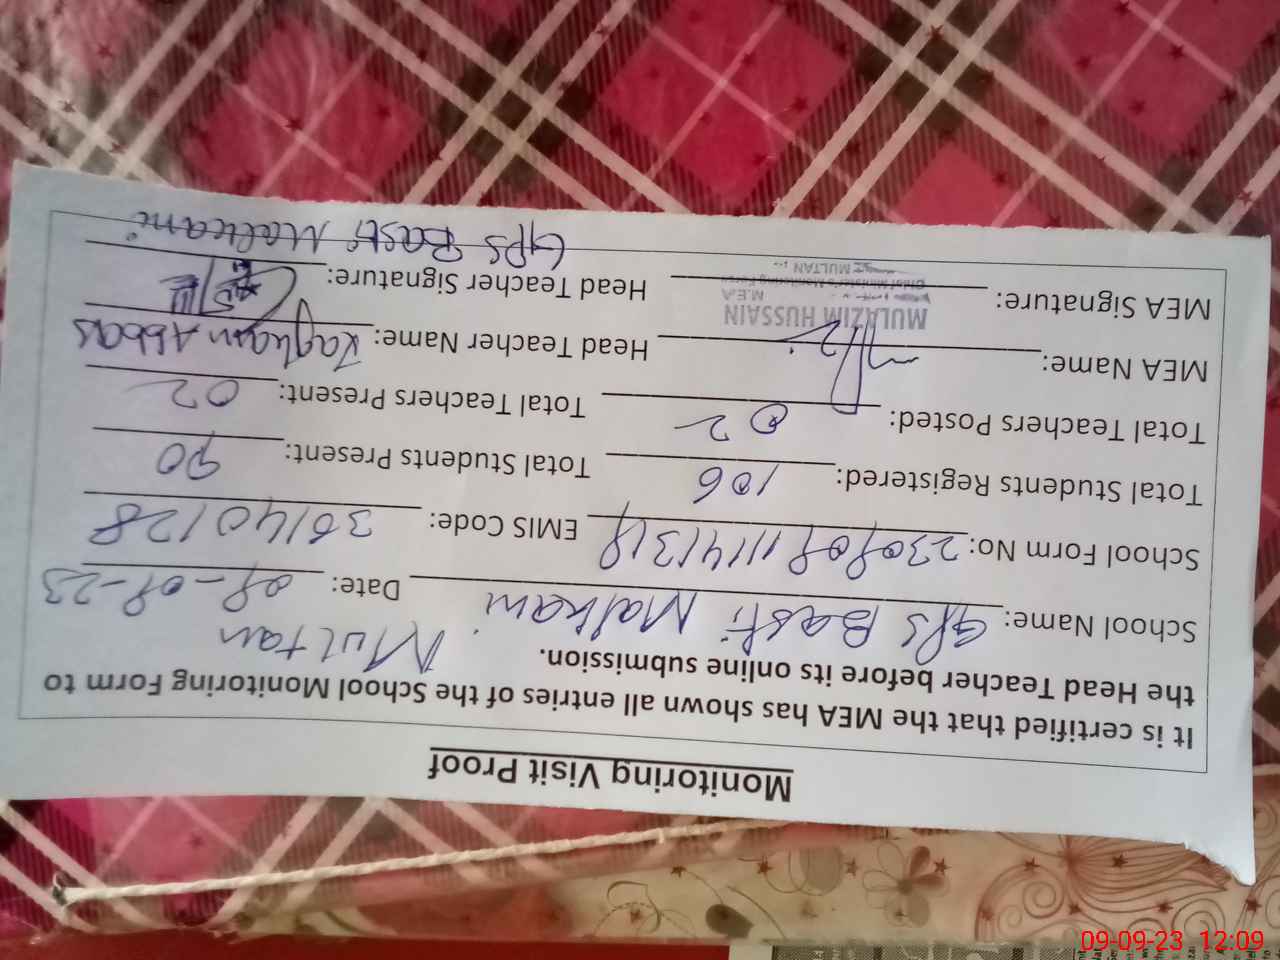 Monitoring Visit Proof
It is certified that the MEA has shown all entries of the School Monitoring Form to
the Head Teacher before its online submission.
Multan
School Name: GPS Basti Malkani Date: 09-09-23
School Form No: EMIS Code: 36140128
Total Students Registered: 106 Total Students Present: 90
Total Teachers Posted: 02 Total Teachers Present: 02
MEA Name: Head Teacher Name: Zagham Abbas
MULAZIM HUSSAIN
M.E.A
Chief Minister's Monitoring Force
MULTAN
MEA Signature: Head Teacher Signature:
GPS Basti Malkani
09-09-23 12:09